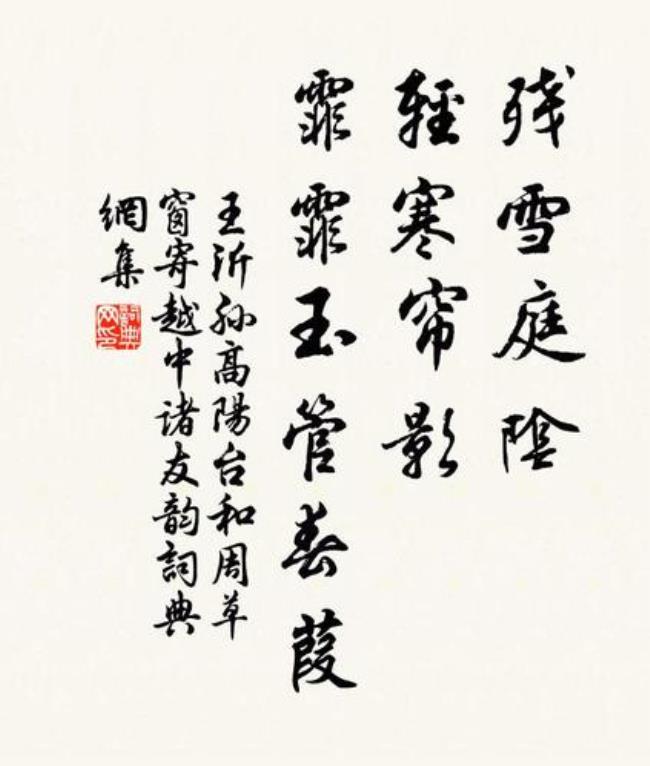 残雪庭陰
輕寒帘影
霏霏玉管春葭
王沂孙高陽台和周草
窗寄越中诸友韵詞典
網集
詞典
网印